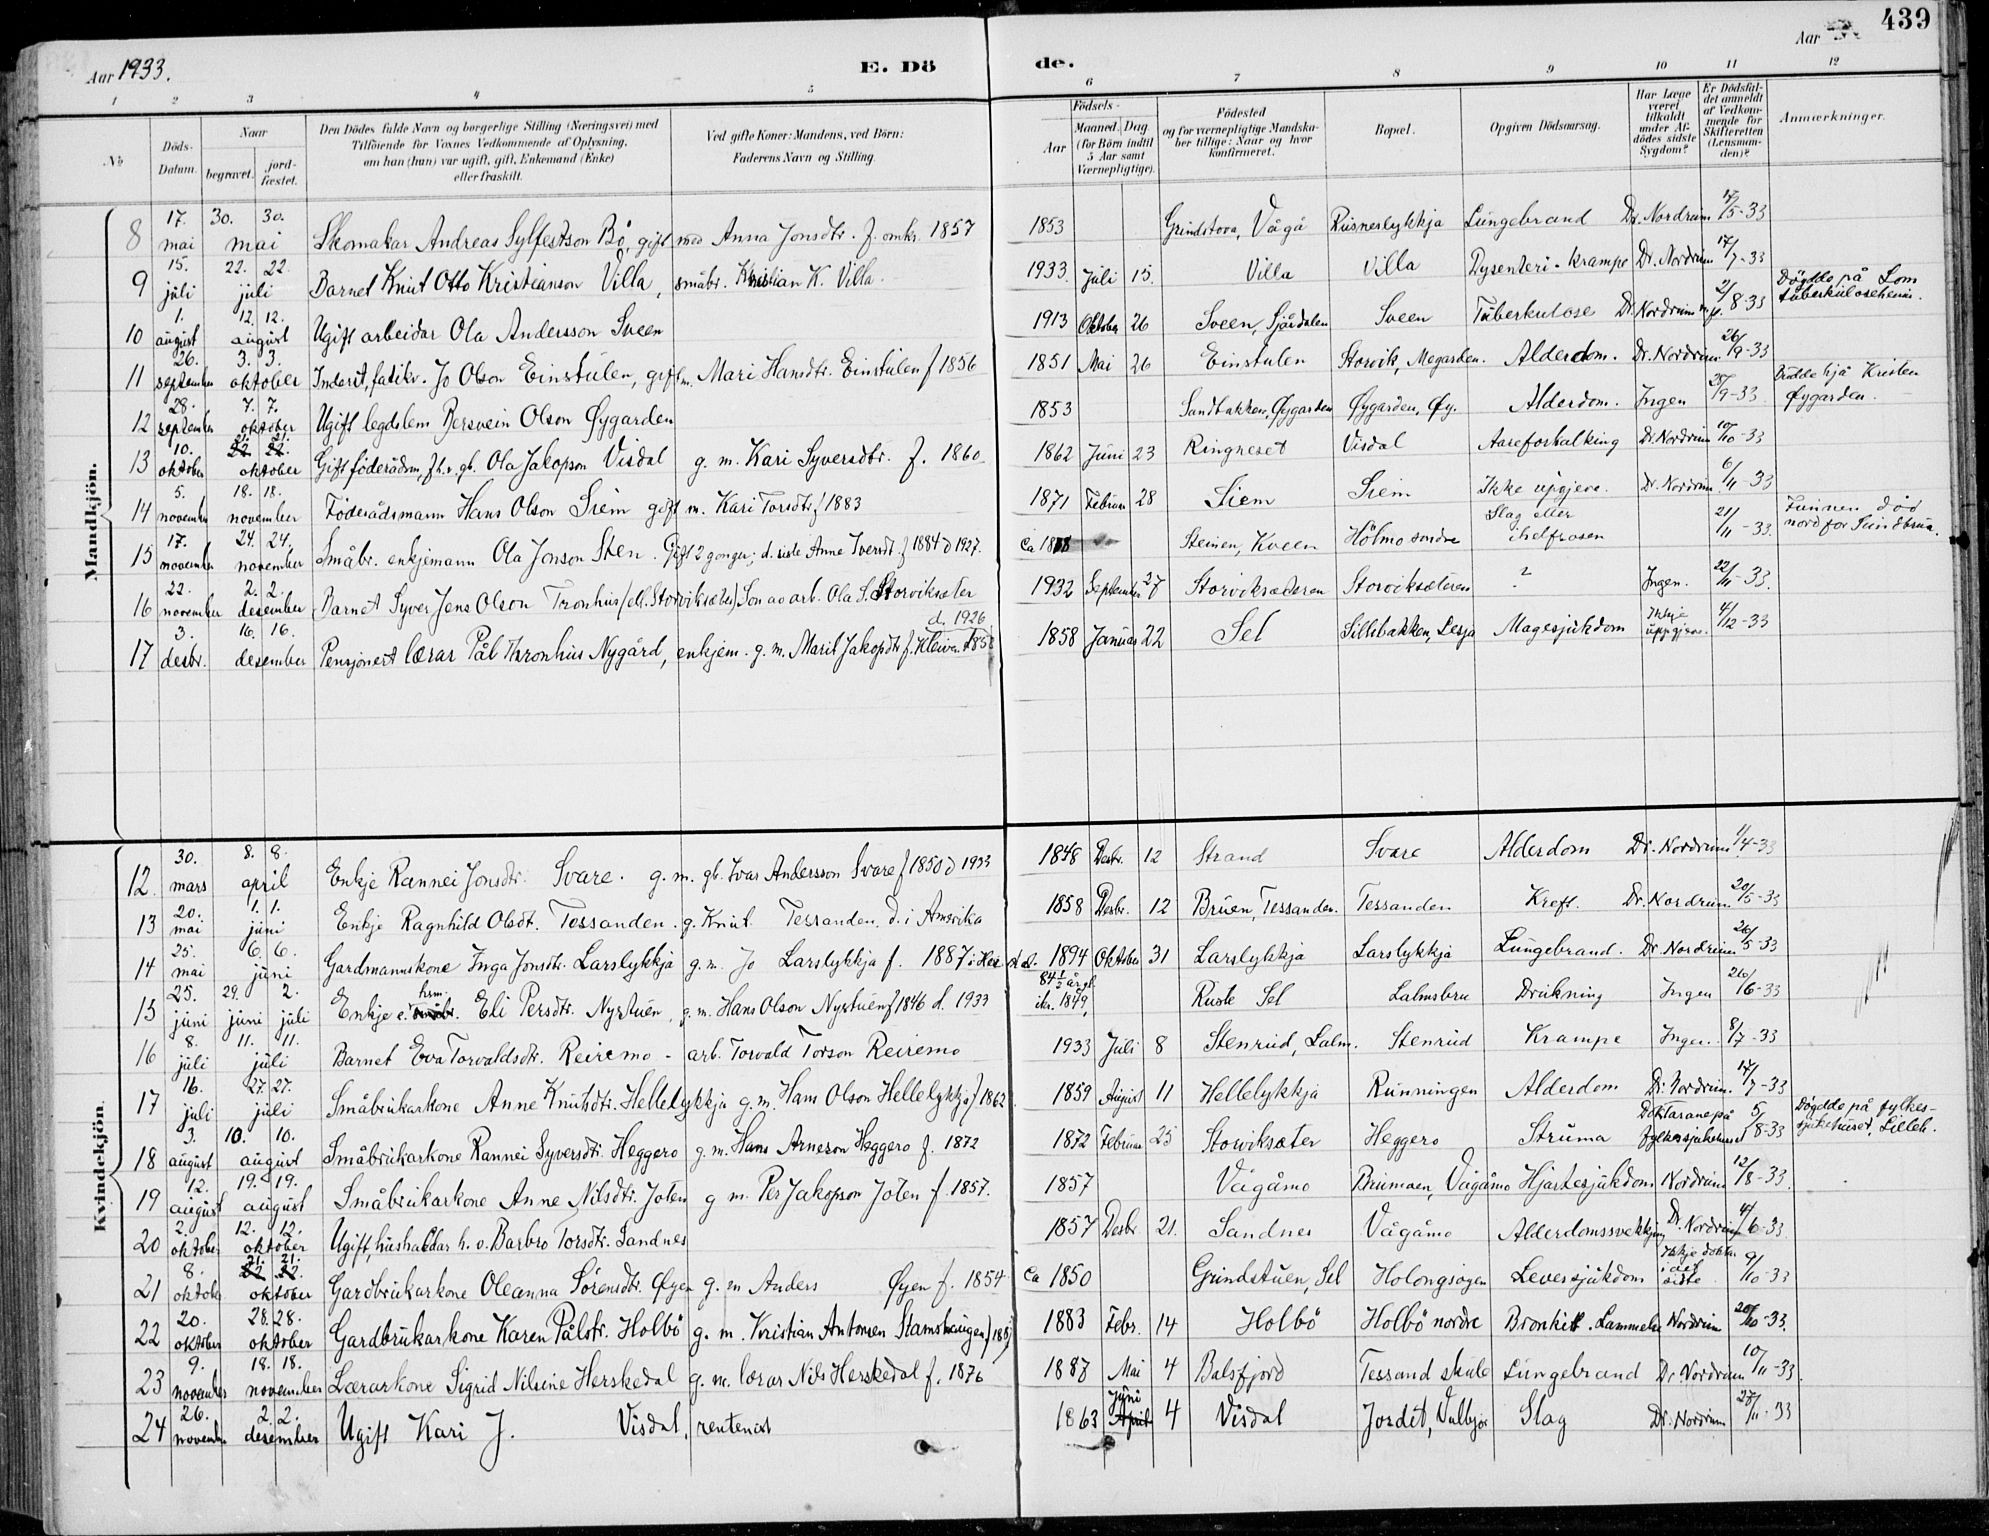 Aar 1933. E. Döde. Aar 439
1 2 3 4 5 6 7 8 9 10 11 12
No
Döds-Datum.
Naar begravet. jordfæstet.
Den Dödes fulde Navn og borgerlige Stilling (Næringsvei) med Tilföiende for Voxnes Vedkommende af Oplysning, om han (hun) var ugift, gift, Enkemand (Enke) eller fraskilt.
Ved gifte Koner: Mandens, ved Börn: Faderens Navn og Stilling.
Födsels-
Aar
Maaned. Dag (for Börn indtil 5 Aar samt Værnepligtige).
Födested og for værnepligtige Mandskaber tillige: Naar og hvor konfirmeret.
Bopæl.
Opgiven Dödsaarsag.
Har Læge været tilkaldt under Afdödes sidste Sygdom?
Er Dödsfaldet anmeldt af Vedkommende for Skifteretten (Lensmanden)?
Anmærkninger.
Mandkjön.
8 17. mai 30. 30. mai Skomakar Andreas Sylfestson Bö, gift med Anna Jonsdtr. f. omkr. 1857 1853 Grindstova, Vågå Rusneslykkja Lungebrand Dr. Nordrum 17/5-33
9 15. juli 22. 22. juli Barnet Knut Otto Kristianson Villa, småbr. Kristian K. Villa. 1933 Juli 15. Villa Villa Dysenteri-krampe Dr. Nordrum 17/7-33
10 1. august 12. 12. august Ugift arbeidar Ola Andersson Sveen 1913 Oktober 26 Sveen, Sjårdalen Sveen Tuberkulose Dr. Nordrum 2/8-33 Döydde på Lom tuberkuloseheim.
11 26. september 3. 3. oktober Inderst, fatikv. Jo Olson Einstulen, gift m. Mari Hansdtr. Einstulen f 1856 1851 Mai 26 Einstulen Storvik, Megarden. Alderdom. Dr. Nordrum 26/9-33
12 28. september 7. 7. oktober Ugift legdslem Bersvein Olson Øygarden 1853 Sandbakken, Øygarden Øygarden, Øy. Alderdom. Ingen 28/9-33 Budde hjå Kristen Øygarden.
13 10. oktober 21. 21. oktober Gift föderådsm, fh.v. gb. Ola Jakopson Visdal g. m. Kari Syversdtr. f. 1860 1862 Juni 23 Ringneset Visdal Aareforkalking Dr. Nordrum 10/10-33
14 5. november 18. 18. november Föderådsmann Hans Olson Srem gift m. Kari Torsdtr f 1883 1871 Februar 28 Siem Srem Ikke upgjeve. Dr. Nordrum 6/11-33
15 17. november 24. 24. november Småbr. enkjemann Ola Jonson Sten. Gift 2 gonger; d. siste Anne Iversdt. f 1884 d 1927. Ca Steinen, Kveen Hölmo söndre Slag eller ihelfrosen 21/11-33. Funnen död nord for Sundbrua.
16 22. november 2. 2. desember Barnet Syver Jens Olson Tronhus (ell. Storviksæter) Son av arb. Ola S. Storviksæter 1932 September 27 Storviksæteren Storviksæteren ? Ingen. 22/11-33.
17 3. desbr. 16. 16. desember Pensjonert lærar Pål Thronhus Nygård, enkjem. g. m. Marit Jakopdtr f. Kleiven 1858 d. 1926 1858 Januar 22 Sel Sillibakken, Lesja Magesjukdom Ikkje uppgjeve. 4/12-33
Kvindekjön.
12. 30. mars 8. 8. april Enkje Rannei Jonsdtr. Svare. g. m. gb. Ivar Andersson Svare f 1850 d 1933 1848 Desbr. 12 Strand Svare Alderdom Dr. Nordrum 1/4-33
13 20. mai 1. 1. juni Enkje Ragnhild Olsdt. Tessanden. g. Knut Tessanden. d. i Amerika 1858 Desbr. 12 Bruen, Tessanden. Tessanden Kreft. Dr. Nordrum 20/5-33
14 25. mai 6. 6. juni Gardmannskone Inga Jonsdtr. Larslykkja g. m. Jo Larslykkja f. 1887 i 1894 Oktober 31 Larslykkja Larslykkja Lungebrand. Dr. Nordrum 26/5-33
15 25. juni 29. juni 2. juli Enkje e. hsm. Eli Persdtr. Nystuen, g. m. Hans Olson Nystuen f 1846 d. 1933 84 1/2 år gl. ikr. 1849, Ruste Sel Lalmsbru Drukning Ingen 26/6-33
16 8. juli 11. 11. juli Barnet Eva Torvaldsdtr. Reiremo - arb. Torvald Torson Reiremo 1933 Juli 8 Stenrud, Lalm. Stenrud Krampe Ingen. 8/7-33
17 16. juli 27. 27. juli Småbrukarkone Anne Knutsdtr. Hellelykkja g. m. Hans Olson Hellelykkja f 1862 1859 August 11 Hellelykkja Runningen Alderdom Dr. Nordrum. 17/7-33
18 3. august 10. 10. august Småbrukarkone Rannei Syversdtr. Heggero g. m. Hans Arneson Heggero f. 1872 1872 Februar 25 Storviksæter Heggero Struma Doktarane på fylkessjukehuset 5/8-33 Döydde på fylkessjukehuset, Lilleh.
19 12. august 19. 19. august Småbrukarkone Anne Nilsdtr. Joten g m. Per Jakopson Joten f. 1857. 1857 Vågåmo Brumoen, Vågåmo Hjartesjukdom Nordrum 12/8-33.
20 2. oktober 12. 12. oktober Ugift, hushaldar h. o. Barbro Torsdtr. Sandnes 1857 Desbr 21. Sandnes Vågåmo Alderdomssvekking Dr. Nordrum 4/6-33
21 8. oktober 21. 21. oktober Gardbrukarkone Oleanna Sörensdtr. Øyen g. m Anders Øyen f. 1854 Ca 1850 Grindstuen, Sel Holongsøyen Leversjukdom Ikkje doktar i det siste 9/10-33
22 20. oktober 28. 28. oktober Gardbrukarkone Karen Pålstr. Holbö g. m. Kristian Antonsen Slamshaugen 1883 Febr. 14 Holbö Holbö nordre Bronkit. Lammelse Nordrum 20/10-33.
23 9. november 18. 18. november Lærarkone Sigrid Nilsine Herskedal g. m. lærar Nils Herskedal f. 1876 1887 Mai 4 Balsfjord Tessand skule Lungebrand Dr Nordrum 10/11-33.
24 26. november 2. 2. desember Ugift Kari J. Visdal, rentenist 1863 Juni 4 Visdal Jordet, Slag Dr. Nordrum 27/11-33